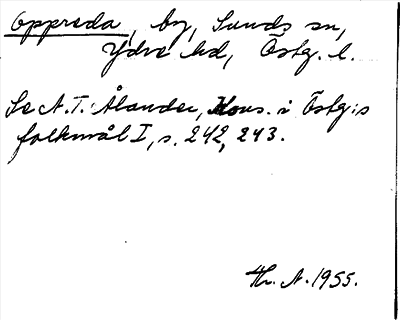 Oppreda, by, Sunds sn,
Ydre hd, Östg. l.
Se N. T. Ålander, Kons. i Östg:s
folkmål I, s. 242, 243.
Hr. N. 1955.